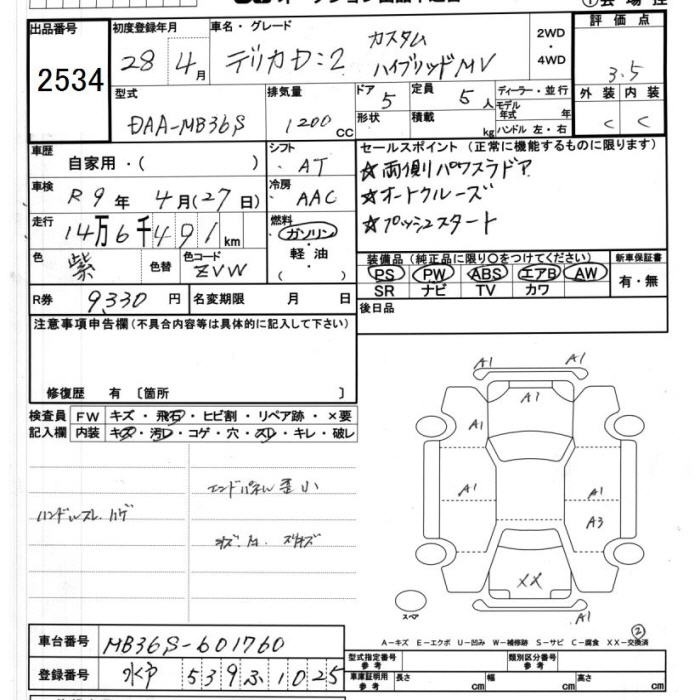 出品番号 2534
初度登録年月 28年 4月
車名・グレード デリカD:2 カスタム ハイブリッドMV
2WD・4WD
評価点 3.5
外装 C 内装 C
型式 DAA-MB36S
排気量 1200 CC
ドア 5 定員 5人
形状 積載 kg
ディーラー・並行
モデル年式 年
ハンドル 左・右
車歴 自家用・( )
シフト AT
セールスポイント(正常に機能するものに限ります)
☆両側パワスラドア
☆オートクルーズ
☆プッシュスタート
車検 R9年 4月(27日)
冷房 AAC
走行 14万6千491km
燃料 ガソリン・軽油・( )
色 紫 色替 色コード ZVW
装備品(純正品に限り○をつけてください)
PS PW ABS エアB AW
SR ナビ TV カワ
新車保証書 有・無
R券 9,330円 名変期限 月 日
後日品
注意事項申告欄(不具合内容等は具体的に記入して下さい)
修復歴 有〔箇所 〕
検査員記入欄
FW キズ・飛石・ヒビ割・リペア跡・×要
内装 キズ・汚レ・コゲ・穴・スレ・キレ・破レ
エンドパネル歪小
ハンドルスレ ハゲ
A1 A1
A1
A1
A1 A1
A3
XX
A1
スペア
②
A-キズ E-エクボ U-凹み W-補修跡 S-サビ C-腐食 XX-交換済
車台番号 MB36S-601760
登録番号 水戸 539 ふ 1025
型式指定番号 参考 類別区分番号 参考
車庫証明用 参考 長さ cm 幅 cm 高さ cm